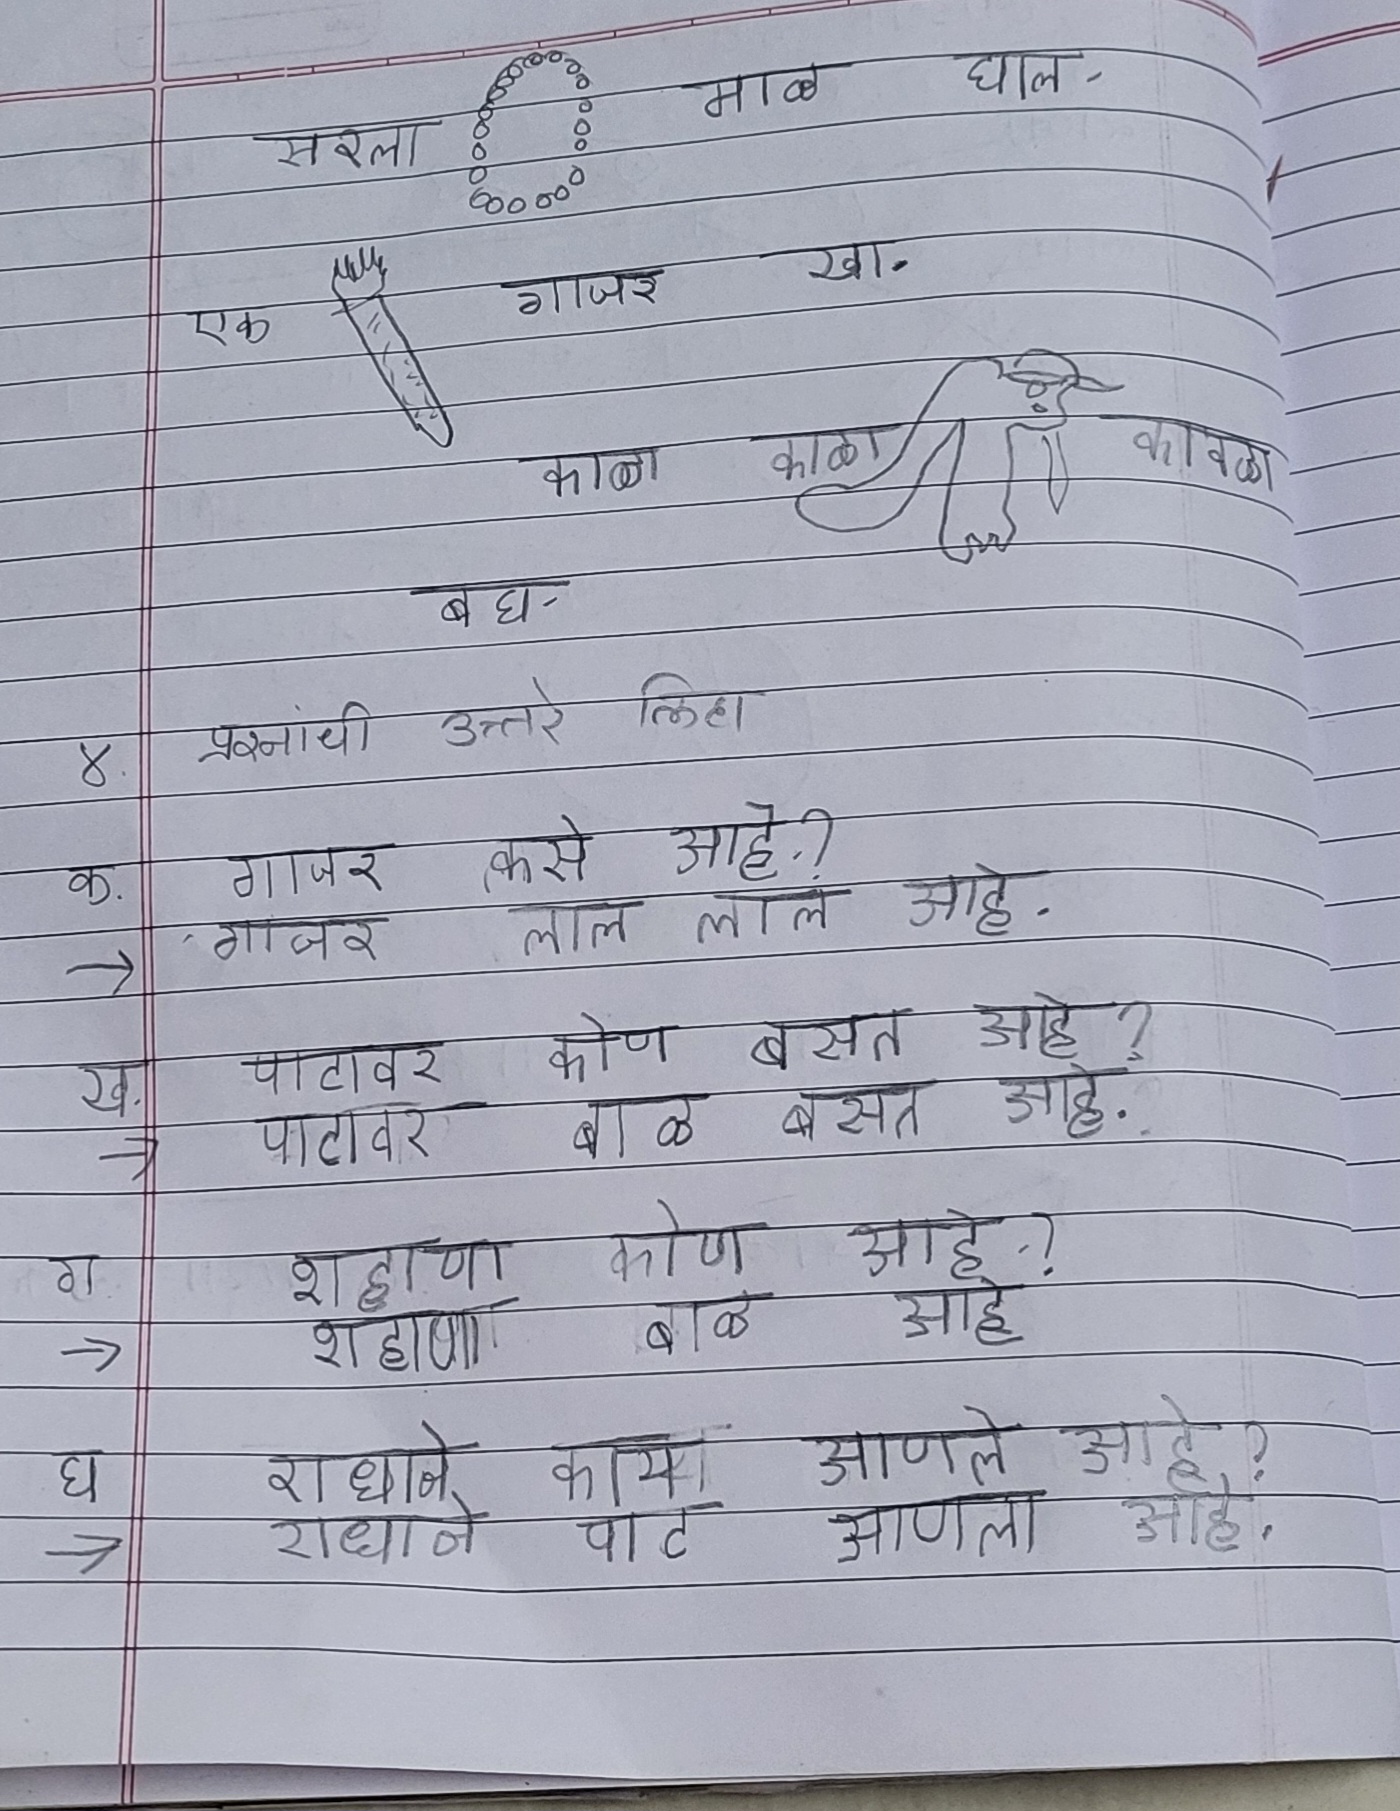 सरला माळ घाल.
एक गाजर खा.
काळा काळा कावळा
बघ.
४. प्रश्नांची उत्तरे लिहा
क. गाजर कसे आहे.?
→ गाजर लाल लाल आहे.
ख. पाटावर कोण बसत आहे?
→ पाटावर बाळ बसत आहे.
ग शहाणा कोण आहे.?
→ शहाणा बाळ आहे
घ राधाने काय आणले आहे?
→ राधाने पाट आणला आहे.